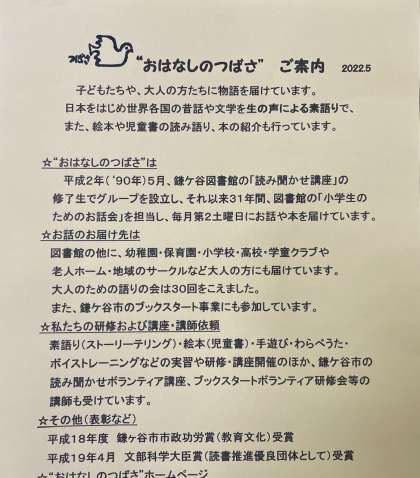 つばさ
“おはなしのつばさ” ご案内 2022.5
子どもたちや、大人の方たちに物語を届けています。
日本をはじめ世界各国の昔話や文学を生の声による素語りで、
また、絵本や児童書の読み語り、本の紹介も行っています。
☆“おはなしのつばさ”は
平成2年(‘90年)5月、鎌ケ谷図書館の「読み聞かせ講座」の
修了生でグループを設立し、それ以来31年間、図書館の「小学生の
ためのお話会」を担当し、毎月第2土曜日にお話や本を届けています。
☆お話のお届け先は
図書館の他に、幼稚園・保育園・小学校・高校・学童クラブや
老人ホーム・地域のサークルなど大人の方にも届けています。
大人のための語りの会は30回をこえました。
また、鎌ケ谷市のブックスタート事業にも参加しています。
☆私たちの研修および講座・講師依頼
素語り(ストーリーテリング)・絵本(児童書)・手遊び・わらべうた・
ボイストレーニングなどの実習や研修・講座開催のほか、鎌ケ谷市の
読み聞かせボランティア講座、ブックスタートボランティア研修会等の
講師も受けています。
☆その他(表彰など)
平成18年度 鎌ヶ谷市市政功労賞(教育文化)受賞
平成19年4月 文部科学大臣賞(読書推進優良団体として)受賞
☆“おはなしのつばさ”ホームページ